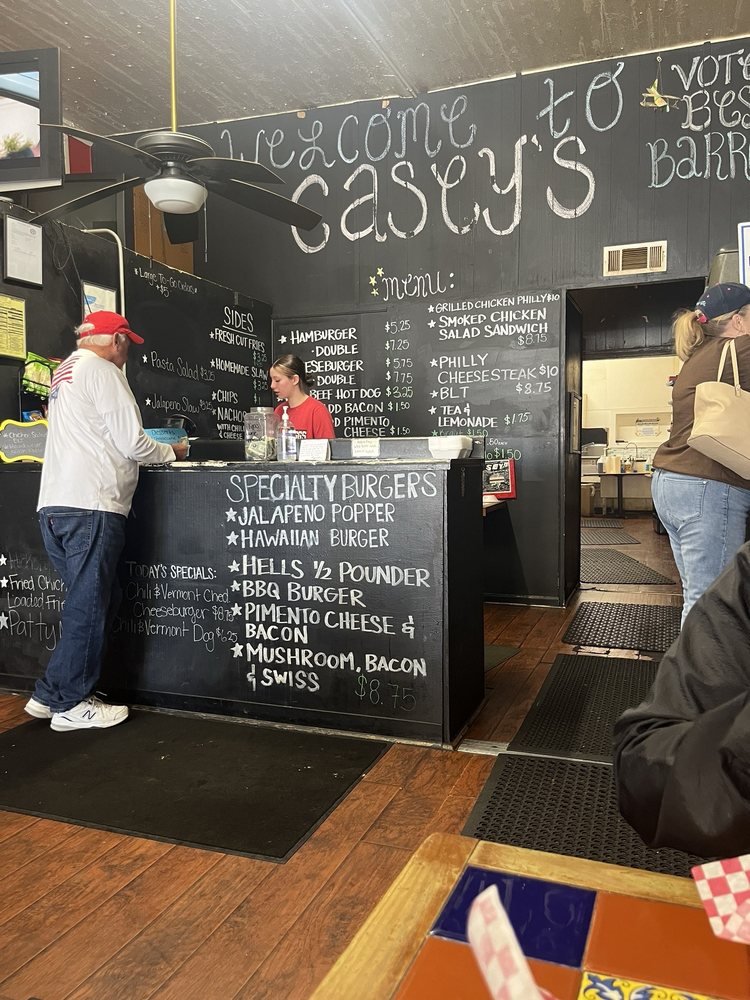 Welcome to
Casey's
VOTE
BES
BARR
menu:
*Large To-Go Drinks*
SIDES
*FRESH CUT FRIES
$3.25
*Pasta Salad $3.25
*HOMEMADE SLAW
*CHIPS
*Jalapeño Slaw
NACHOS
WITH CHILI
& CHEESE
*HAMBURGER $5.25
·DOUBLE $7.25
ESEBURGER $5.75
DOUBLE $7.75
BEEF HOT DOG $3.25
DD BACON $1.50
D PIMENTO
CHEESE $1.50
*GRILLED CHICKEN PHILLY $10
*SMOKED CHICKEN
SALAD SANDWICH
$8.75
*PHILLY
CHEESESTEAK $10
*BLT $8.75
*TEA &
LEMONADE $1.75
$1.50
SPECIALTY BURGERS
*JALAPENO POPPER
*HAWAIIAN BURGER
*HELLS 1/2 POUNDER
*BBQ BURGER
*PIMENTO CHEESE &
BACON
*MUSHROOM, BACON
& SWISS
$8.75
TODAY'S SPECIALS:
Chili & Vermont Ched.
Cheeseburger
Chili & Vermont Dog $6.25
*Fried Chic
Loaded Fri
*Patty M